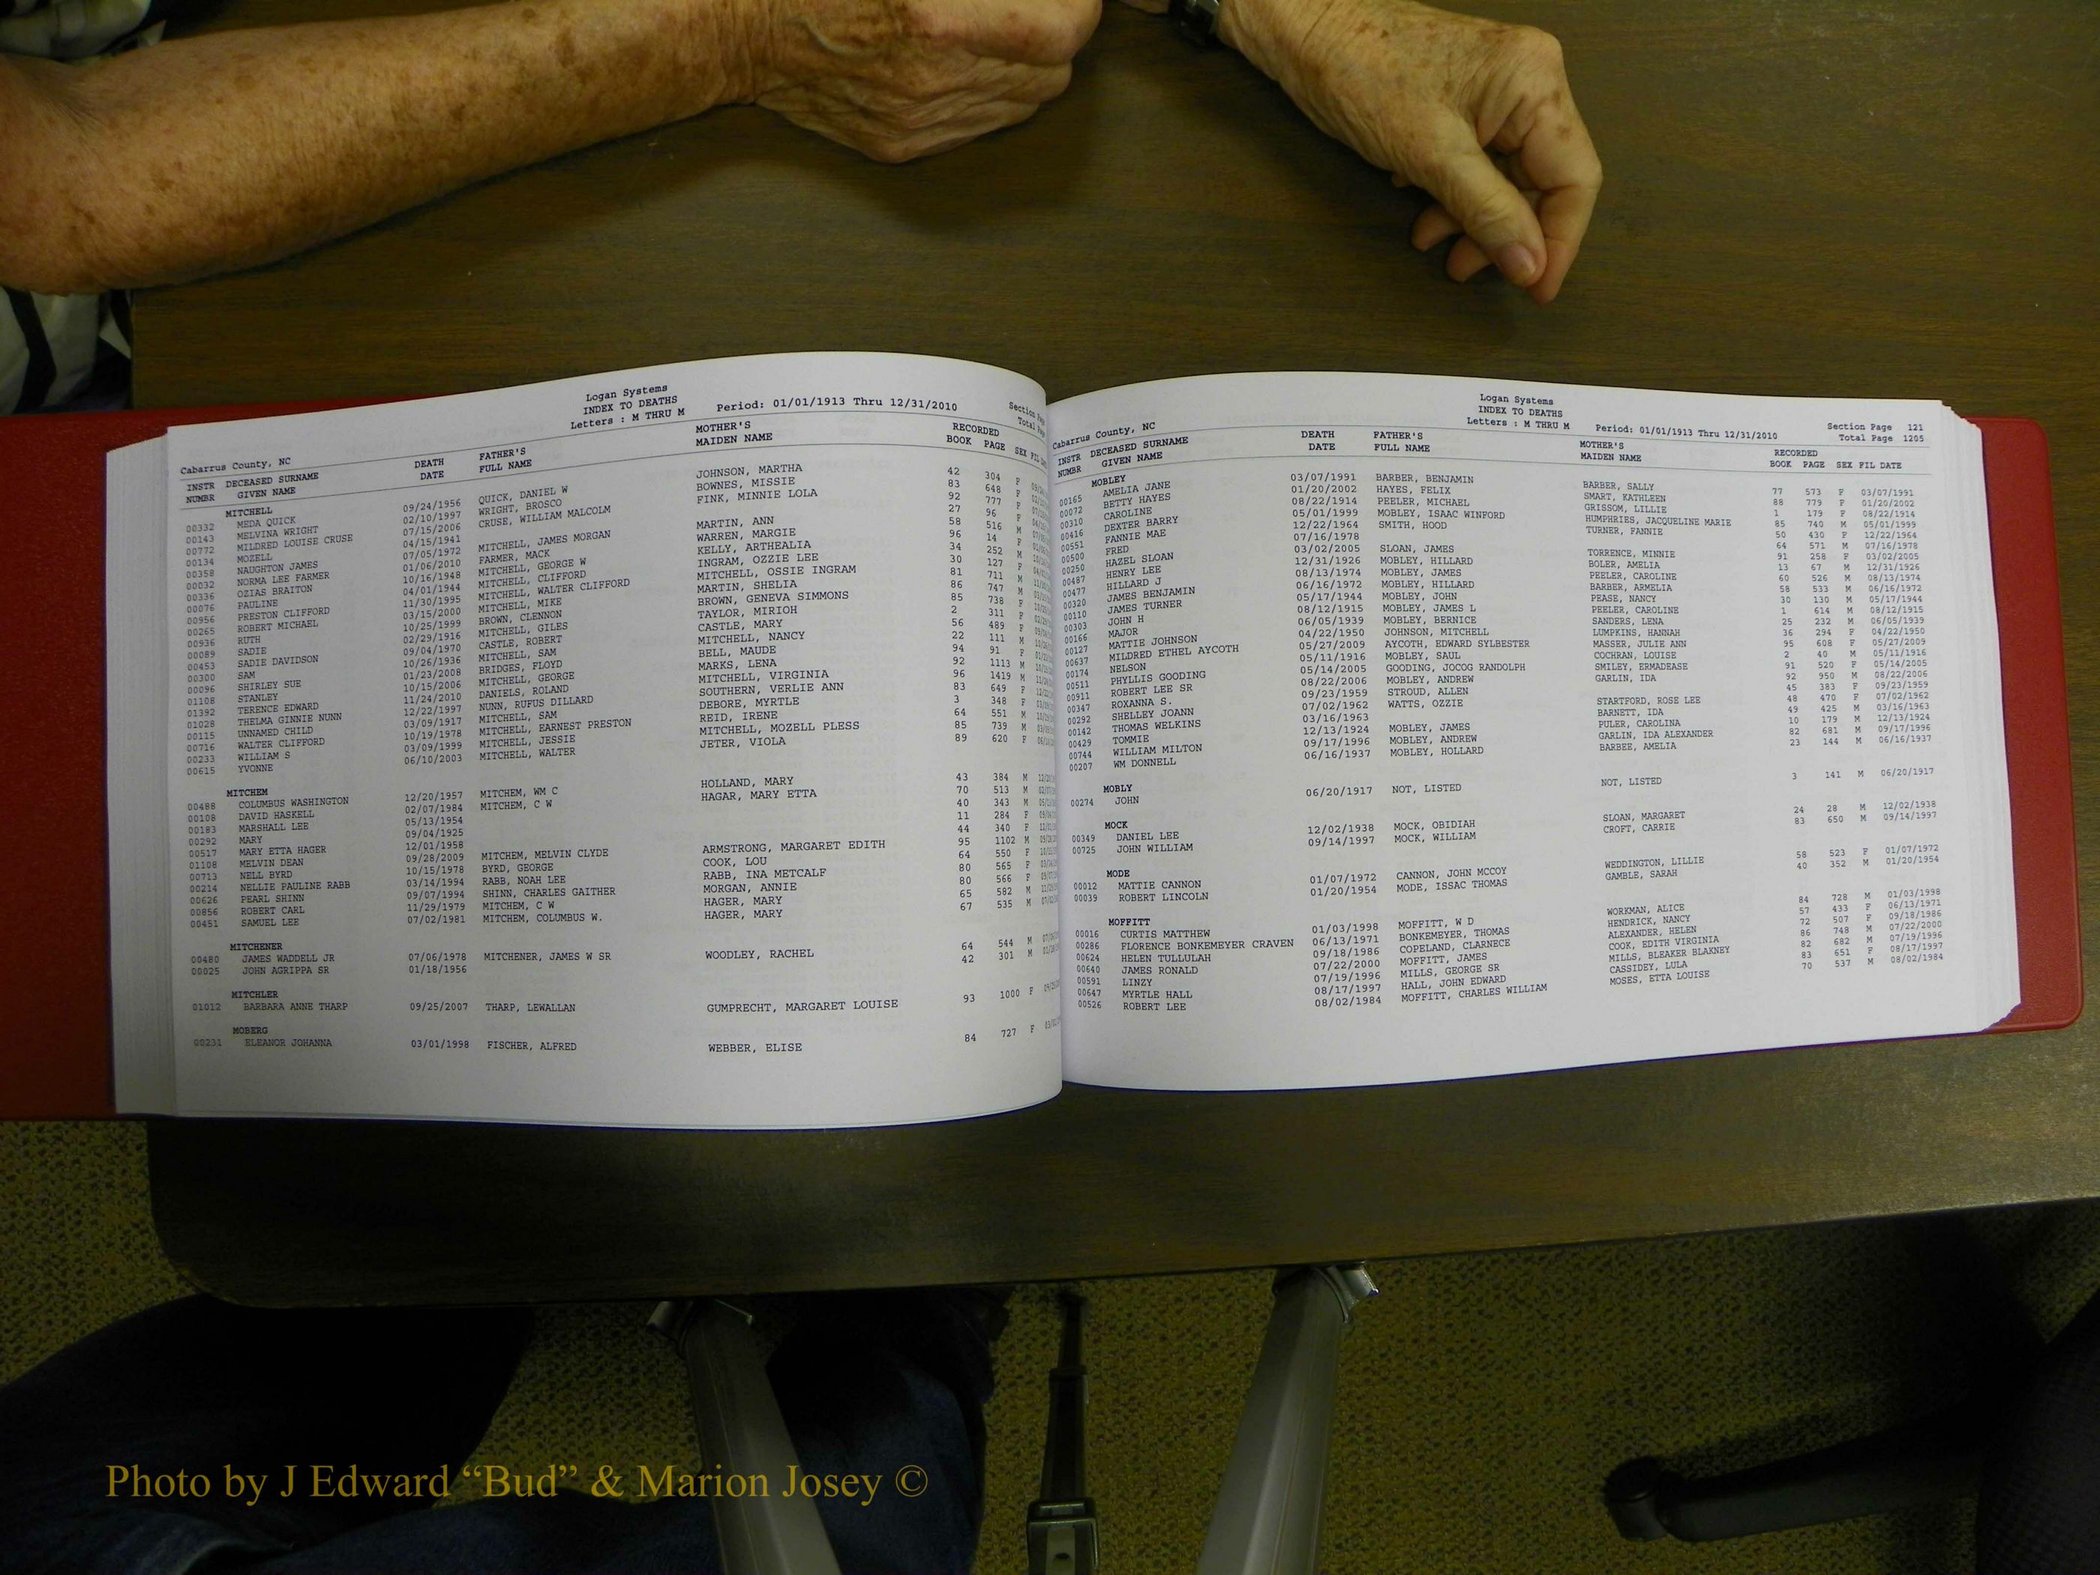 Logan Systems
INDEX TO DEATHS
Letters : M THRU M Period: 01/01/1913 Thru 12/31/2010
Section
Total Page
Cabarrus County, NC
INSTR DECEASED SURNAME DEATH FATHER'S MOTHER'S RECORDED
NUMBR GIVEN NAME DATE FULL NAME MAIDEN NAME BOOK PAGE SEX FIL
MITCHELL
00332 MEDA QUICK 09/24/1956 QUICK, DANIEL W JOHNSON, MARTHA 42 304 F
00143 MELVINA WRIGHT 02/10/1997 WRIGHT, BROSCO BOWNES, MISSIE 83 648 F
00772 MILDRED LOUISE CRUSE 07/15/2006 CRUSE, WILLIAM MALCOLM FINK, MINNIE LOLA 92 777 F
00134 MOZELL 04/15/1941 27 96 F
00358 NAUGHTON JAMES 07/05/1972 MITCHELL, JAMES MORGAN MARTIN, ANN 58 516 M
00032 NORMA LEE FARMER 01/06/2010 FARMER, MACK WARREN, MARGIE 96 14 F
00336 OZIAS BRAITON 10/16/1948 MITCHELL, GEORGE W KELLY, ARTHEALIA 34 252 M
00076 PAULINE 04/01/1944 MITCHELL, CLIFFORD INGRAM, OZZIE LEE 30 127 F
00956 PRESTON CLIFFORD 11/30/1995 MITCHELL, WALTER CLIFFORD MITCHELL, OSSIE INGRAM 81 711 M
00265 ROBERT MICHAEL 03/15/2000 MITCHELL, MIKE MARTIN, SHELIA 86 747 M
00936 RUTH 10/25/1999 BROWN, CLENNON BROWN, GENEVA SIMMONS 85 738 F
00089 SADIE 02/29/1916 MITCHELL, GILES TAYLOR, MIRIOH 2 311 F
00453 SADIE DAVIDSON 09/04/1970 CASTLE, ROBERT CASTLE, MARY 56 489 F
00300 SAM 10/26/1936 MITCHELL, SAM MITCHELL, NANCY 22 111 M
00096 SHIRLEY SUE 01/23/2008 BRIDGES, FLOYD BELL, MAUDE 94 91 F
01108 STANLEY 10/15/2006 MITCHELL, GEORGE MARKS, LENA 92 1113 M
01392 TERENCE EDWARD 11/24/2010 DANIELS, ROLAND MITCHELL, VIRGINIA 96 1419 M
01028 THELMA GINNIE NUNN 12/22/1997 NUNN, RUFUS DILLARD SOUTHERN, VERLIE ANN 83 649 F
00115 UNNAMED CHILD 03/09/1917 MITCHELL, SAM DEBORE, MYRTLE 3 348 F
00716 WALTER CLIFFORD 10/19/1978 MITCHELL, EARNEST PRESTON REID, IRENE 64 551 M
00233 WILLIAM S 03/09/1999 MITCHELL, JESSIE MITCHELL, MOZELL PLESS 85 739 M
00615 YVONNE 06/10/2003 MITCHELL, WALTER JETER, VIOLA 89 620 F
MITCHEM
00488 COLUMBUS WASHINGTON 12/20/1957 MITCHEM, WM C HOLLAND, MARY 43 384 M
00108 DAVID HASKELL 02/07/1984 MITCHEM, C W HAGAR, MARY ETTA 70 513 M
00183 MARSHALL LEE 05/13/1954 40 343 M
00292 MARY 09/04/1925 11 284 F
00517 MARY ETTA HAGER 12/01/1958 44 340 F
01108 MELVIN DEAN 09/28/2009 MITCHEM, MELVIN CLYDE ARMSTRONG, MARGARET EDITH 95 1102 M
00713 NELL BYRD 10/15/1978 BYRD, GEORGE COOK, LOU 64 550 F
00214 NELLIE PAULINE RABB 03/14/1994 RABB, NOAH LEE RABB, INA METCALF 80 565 F
00626 PEARL SHINN 09/07/1994 SHINN, CHARLES GAITHER MORGAN, ANNIE 80 566 F
00856 ROBERT CARL 11/29/1979 MITCHEM, C W HAGER, MARY 65 582 M
00451 SAMUEL LEE 07/02/1981 MITCHEM, COLUMBUS W. HAGER, MARY 67 535 M
MITCHENER
00480 JAMES WADDELL JR 07/06/1978 MITCHENER, JAMES W SR WOODLEY, RACHEL 64 544 M
00025 JOHN AGRIPPA SR 01/18/1956 42 301 M
MITCHLER
01012 BARBARA ANNE THARP 09/25/2007 THARP, LEWALLAN GUMPRECHT, MARGARET LOUISE 93 1000 F
MOBERG
00231 ELEANOR JOHANNA 03/01/1998 FISCHER, ALFRED WEBBER, ELISE 84 727 F
Logan Systems
INDEX TO DEATHS
Letters : M THRU M Period: 01/01/1913 Thru 12/31/2010
Section Page 121
Total Page 1205
Cabarrus County, NC
INSTR DECEASED SURNAME DEATH FATHER'S MOTHER'S RECORDED
NUMBR GIVEN NAME DATE FULL NAME MAIDEN NAME BOOK PAGE SEX FIL DATE
MOBLEY
00165 AMELIA JANE 03/07/1991 BARBER, BENJAMIN BARBER, SALLY 77 573 F 03/07/1991
00072 BETTY HAYES 01/20/2002 HAYES, FELIX SMART, KATHLEEN 88 779 F 01/20/2002
00310 CAROLINE 08/22/1914 PEELER, MICHAEL GRISSOM, LILLIE 1 179 F 08/22/1914
00416 DEXTER BARRY 05/01/1999 MOBLEY, ISAAC WINFORD HUMPHRIES, JACQUELINE MARIE 85 740 M 05/01/1999
00551 FANNIE MAE 12/22/1964 SMITH, HOOD TURNER, FANNIE 50 430 F 12/22/1964
00500 FRED 07/16/1978 64 571 M 07/16/1978
00250 HAZEL SLOAN 03/02/2005 SLOAN, JAMES TORRENCE, MINNIE 91 258 F 03/02/2005
00487 HENRY LEE 12/31/1926 MOBLEY, HILLARD BOLER, AMELIA 13 67 M 12/31/1926
00477 HILLARD J 08/13/1974 MOBLEY, JAMES PEELER, CAROLINE 60 526 M 08/13/1974
00320 JAMES BENJAMIN 06/16/1972 MOBLEY, HILLARD BARBER, ARMELIA 58 533 M 06/16/1972
00110 JAMES TURNER 05/17/1944 MOBLEY, JOHN PEASE, NANCY 30 130 M 05/17/1944
00303 JOHN H 08/12/1915 MOBLEY, JAMES L PEELER, CAROLINE 1 614 M 08/12/1915
00166 MAJOR 06/05/1939 MOBLEY, BERNICE SANDERS, LENA 25 232 M 06/05/1939
00127 MATTIE JOHNSON 04/22/1950 JOHNSON, MITCHELL LUMPKINS, HANNAH 36 294 F 04/22/1950
00637 MILDRED ETHEL AYCOTH 05/27/2009 AYCOTH, EDWARD SYLBESTER MASSER, JULIE ANN 95 608 F 05/27/2009
00174 NELSON 05/11/1916 MOBLEY, SAUL COCHRAN, LOUISE 2 40 M 05/11/1916
00511 PHYLLIS GOODING 05/14/2005 GOODING, JOCOG RANDOLPH SMILEY, ERMADEASE 91 520 F 05/14/2005
00911 ROBERT LEE SR 08/22/2006 MOBLEY, ANDREW GARLIN, IDA 92 950 M 08/22/2006
00347 ROXANNA S. 09/23/1959 STROUD, ALLEN 45 383 F 09/23/1959
00292 SHELLEY JOANN 07/02/1962 WATTS, OZZIE STARTFORD, ROSE LEE 48 470 F 07/02/1962
00142 THOMAS WELKINS 03/16/1963 BARNETT, IDA 49 425 M 03/16/1963
00429 TOMMIE 12/13/1924 MOBLEY, JAMES PULER, CAROLINA 10 179 M 12/13/1924
00744 WILLIAM MILTON 09/17/1996 MOBLEY, ANDREW GARLIN, IDA ALEXANDER 82 681 M 09/17/1996
00207 WM DONNELL 06/16/1937 MOBLEY, HOLLARD BARBEE, AMELIA 23 144 M 06/16/1937
MOBLY
00274 JOHN 06/20/1917 NOT, LISTED NOT, LISTED 3 141 M 06/20/1917
MOCK
00349 DANIEL LEE 12/02/1938 MOCK, OBIDIAH SLOAN, MARGARET 24 28 M 12/02/1938
00725 JOHN WILLIAM 09/14/1997 MOCK, WILLIAM CROFT, CARRIE 83 650 M 09/14/1997
MODE
00012 MATTIE CANNON 01/07/1972 CANNON, JOHN MCCOY WEDDINGTON, LILLIE 58 523 F 01/07/1972
00039 ROBERT LINCOLN 01/20/1954 MODE, ISSAC THOMAS GAMBLE, SARAH 40 352 M 01/20/1954
MOFFITT
00016 CURTIS MATTHEW 01/03/1998 MOFFITT, W D WORKMAN, ALICE 84 728 M 01/03/1998
00286 FLORENCE BONKEMEYER CRAVEN 06/13/1971 BONKEMEYER, THOMAS HENDRICK, NANCY 57 433 F 06/13/1971
00624 HELEN TULLULAH 09/18/1986 COPELAND, CLARNECE ALEXANDER, HELEN 72 507 F 09/18/1986
00640 JAMES RONALD 07/22/2000 MOFFITT, JAMES COOK, EDITH VIRGINIA 86 748 M 07/22/2000
00591 LINZY 07/19/1996 MILLS, GEORGE SR MILLS, BLEAKER BLAKNEY 82 682 M 07/19/1996
00647 MYRTLE HALL 08/17/1997 HALL, JOHN EDWARD CASSIDEY, LULA 83 651 F 08/17/1997
00526 ROBERT LEE 08/02/1984 MOFFITT, CHARLES WILLIAM MOSES, ETTA LOUISE 70 537 M 08/02/1984
Photo by J Edward “Bud” & Marion Josey ©